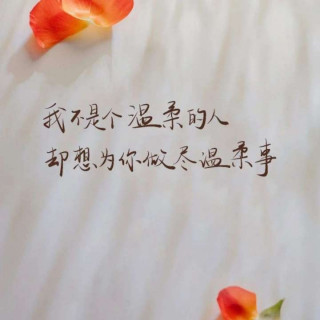 我不是个温柔的人
却想为你做尽温柔事